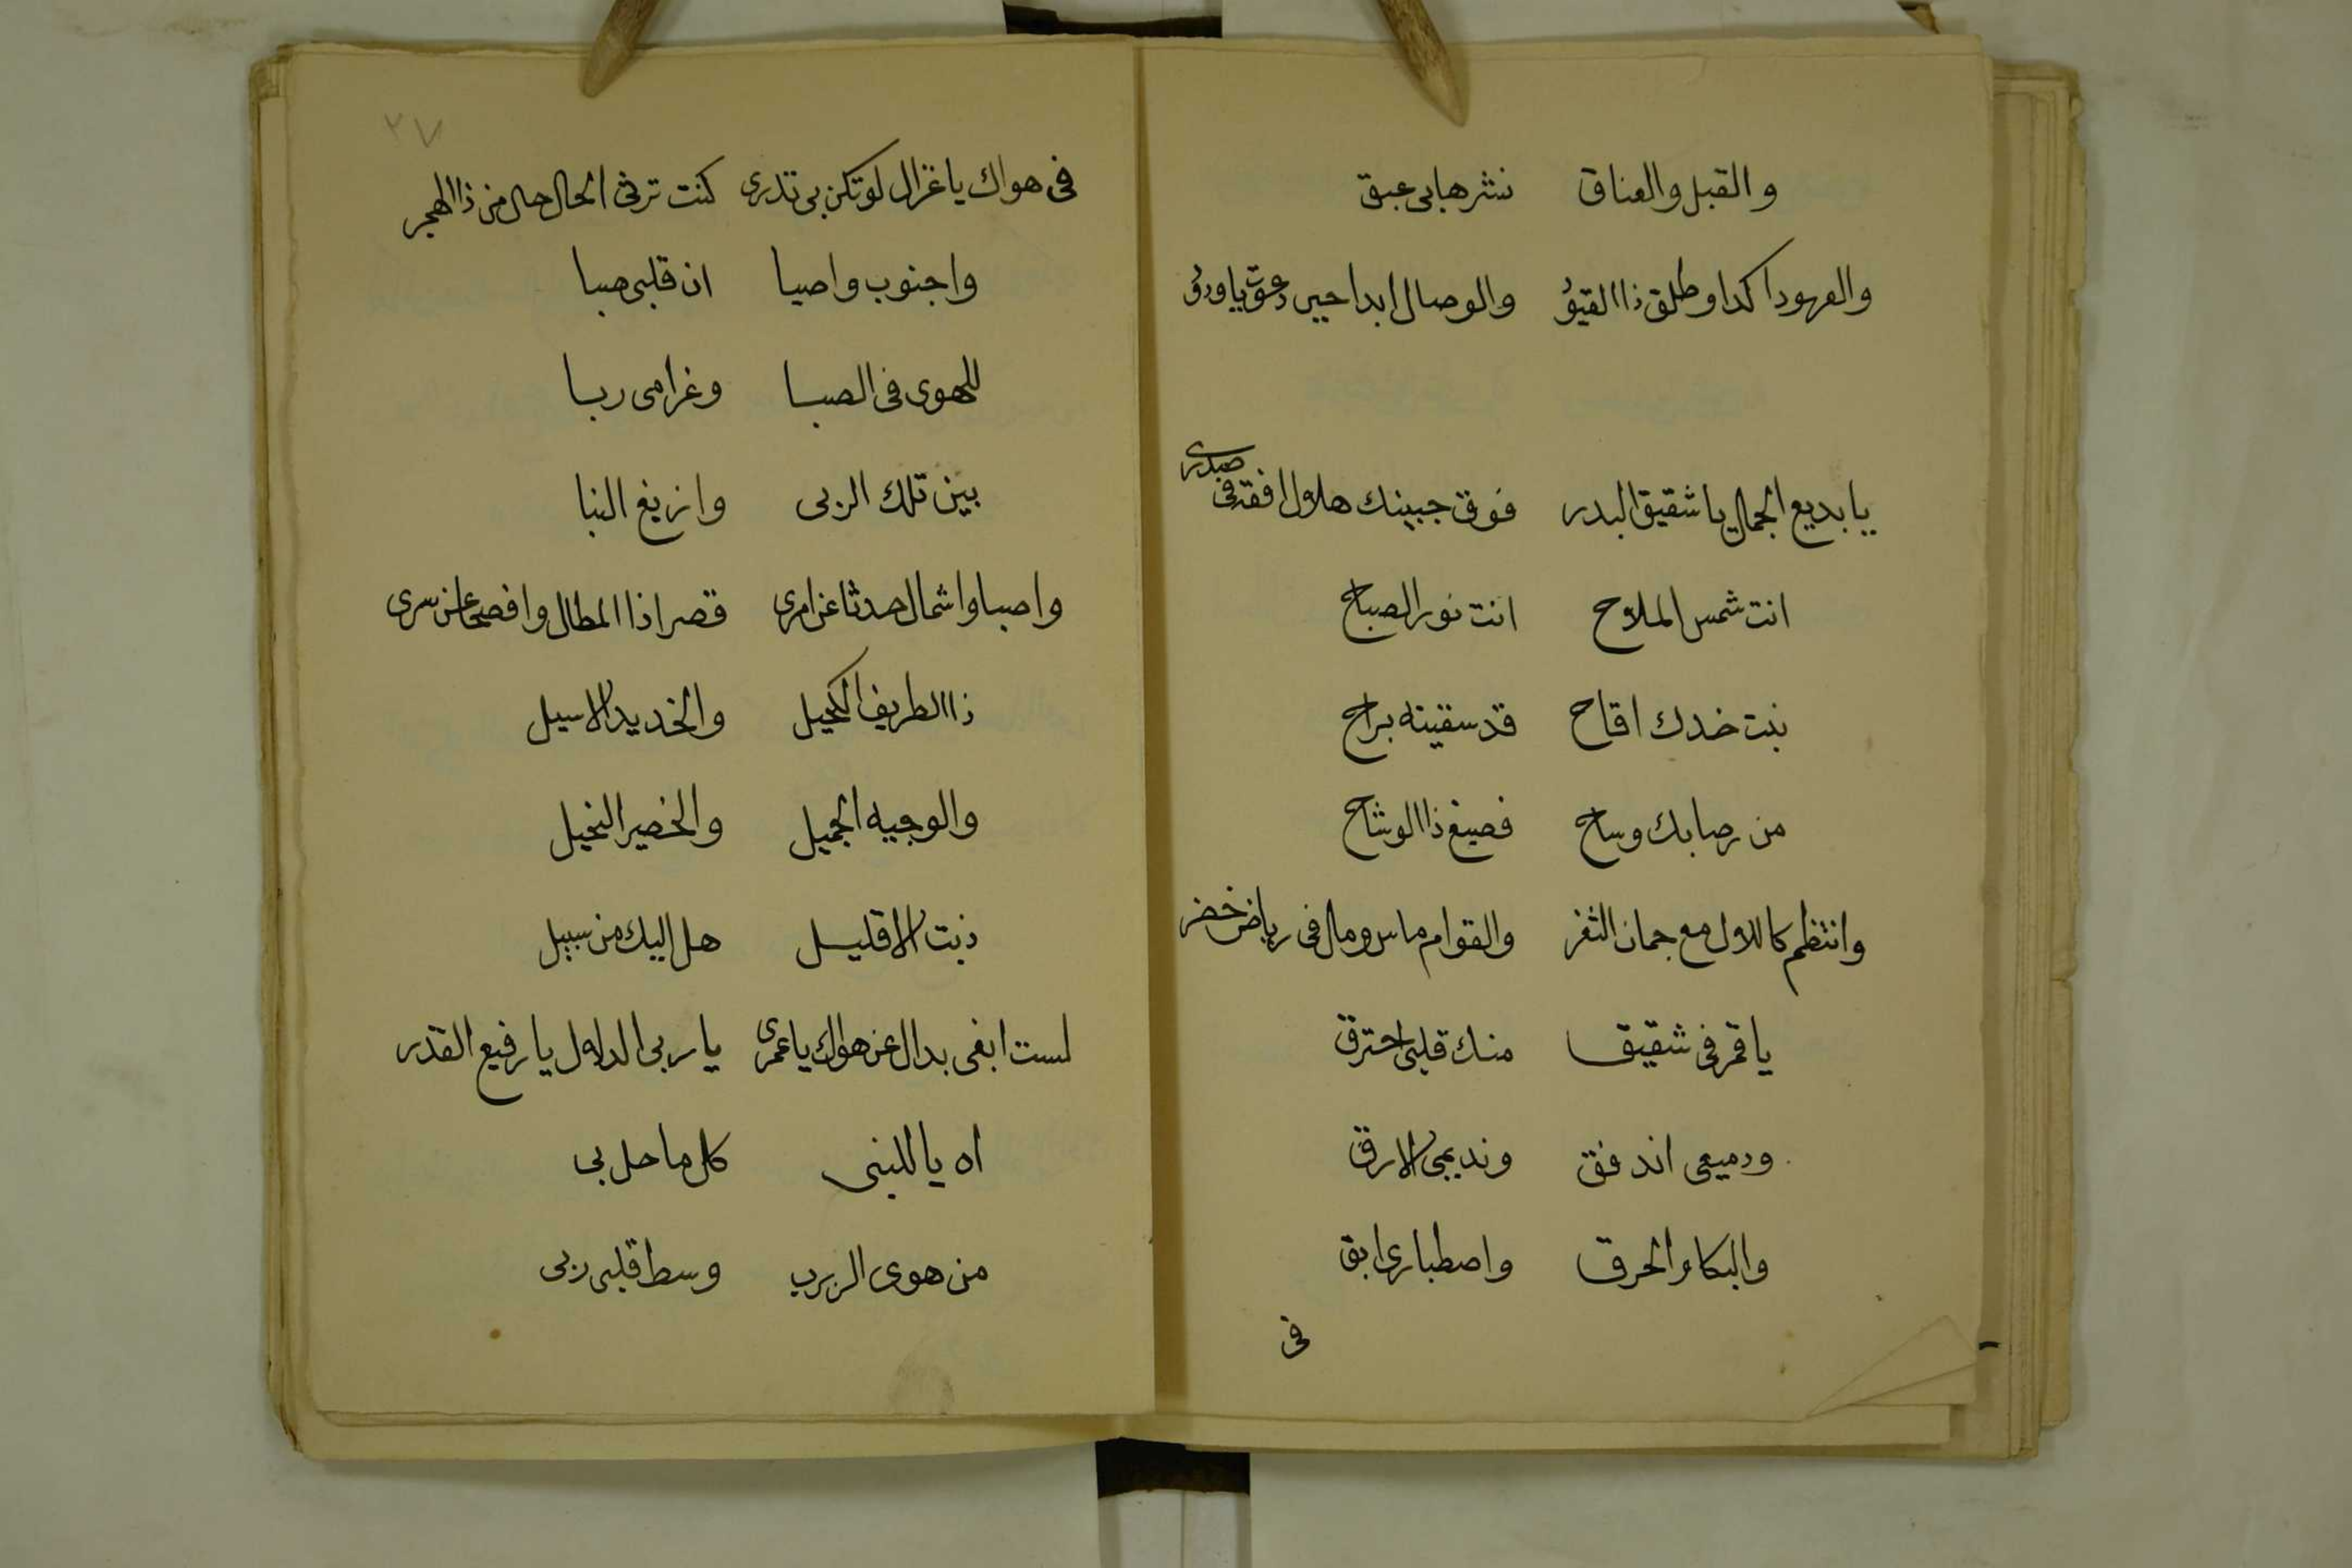 والقبل والعناق نشرها بي عبق
والعهود اكدا وطلق ذا القيق والوصال ابدا حين دعوق يا ودق
يا بديع الجمال يا شقيق البدر فوق جبينك هلال افقه في صدري
انت شمس الملاح انت نور الصباح
نبت خدك اقاح قد سقيته براح
من رصابك وساح فصيغ ذا الوشاح
وانتظم كاللال مع جمان الثغر والقوام ماس ومال في رياض خضر
يا قمر في شقيق منك قلبي احترق
ودميعى اند فق ونديمى الارق
والبكا والحرق واصطباري ابق
في
٢٧
في هواك يا غزال لو تكن بى تدرى كنت ترثى الحال حالى من ذا الهجر
واجنوب واصبا ان قلبي صبا
للهوى في الصبا وغرامى ربا
بين تلك الربى وانزيغ النبا
واصبا واشمال حدثا عن امرى قصرا ذا المطال وافصحا عن سرى
ذا الطريف الكحيل والخديد الاسيل
والوجيه الجميل والخصير النحيل
ذبت الا قليل هل اليك من سبيل
لست ابغى بدال عن هواك يا عمرى يا ربى الدلال يا رفيع القدر
اه يا للبنى كل ما حل بى
من هوى الربرب وسط قلبي ربى